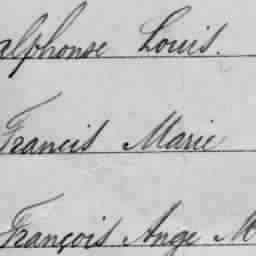 alphonse Louis.
Francis Marie
François Ange M